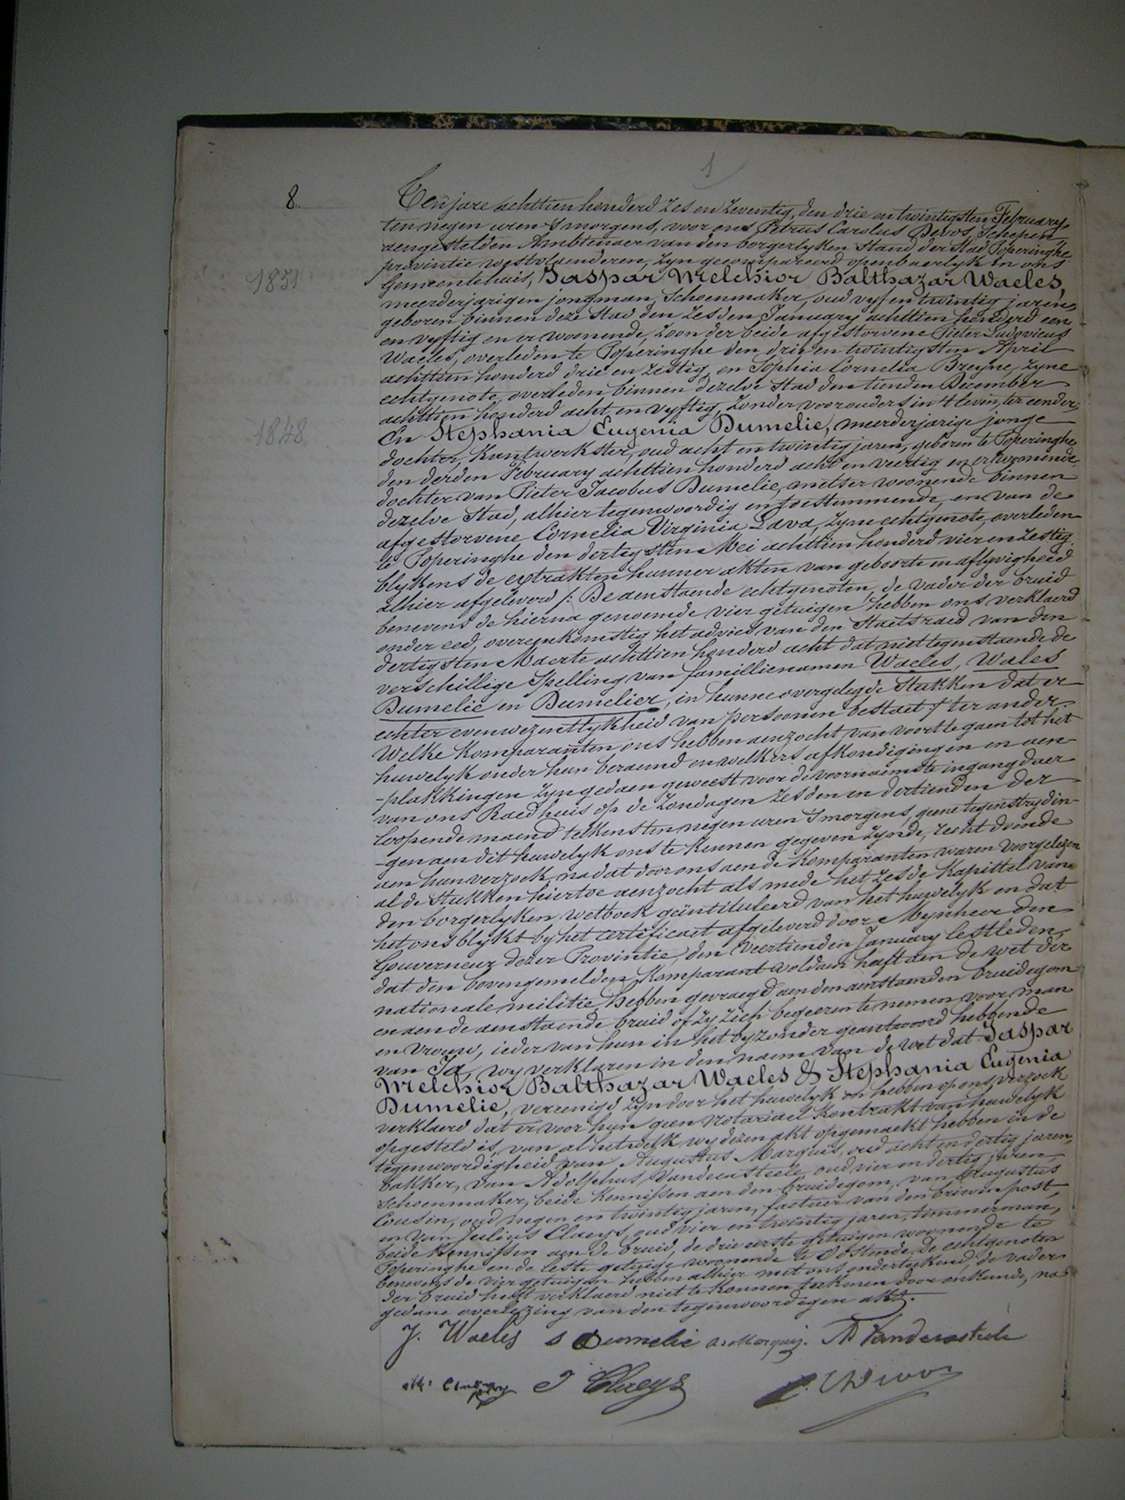 1
8.
Ten jare achttien honderd zes en zeventig, den drie en twintigsten February
ten negen uren 's morgens, voor ons Petrus Carolus Devos, Schepen
aengestelden Ambtenaer van den borgerlyken stand der Stad Poperinghe
provintie westvlaenderen, zyn gecompareerd openbaerlyk in ons
Gemeentehuis, Jaspar Melchior Balthazar Waeles,
1851
meerderjarigen jongman, Schoenmaker, oud vyf en twintig jaren,
geboren binnen deze Stad den zesden January achttien honderd een
en vyftig en er woonende, zoon der beide afgestorvene Pieter Ludovicus
Waeles, overleden te Poperinghe den drie en twintigsten April
achttien honderd drie en zestig, en Sophia Cornelia Breyne, zyne
echtgenote, overleden binnen dezelve Stad den tienden December
achttien honderd acht en vyftig, zonder voorouders in 't leven, ter eender,
1848
En Stephania Eugenia Dumelie, meerderjarige jonge
dochter, kantwerkster, oud acht en twintig jaren, geboren te Poperinghe
den derden February achttien honderd acht en veertig en er woonende
dochter van Pieter Jacobus Dumelie, metser woonende binnen
dezelve Stad, alhier tegenwoordig en toestemmende, en van de
afgestorvene Cornelia Virginia Lava, zyne echtgenote, overleden
te Poperinghe den dertigsten Mei achttien honderd vier en zestig
blykens de extrakten hunner akten van geboorte en aflyvigheid
alhier afgeleverd /: De aenstaende echtgenoten, de vader der bruid
benevens de hierna genoemde vier getuigen hebben ons verklaerd
onder eed, overeenkomstig het advies van den Staetsraed van den
dertigsten Maerte achttien honderd acht dat niettegenstaende de
verschillige Spelling van famillienamen Waeles, Wales
Dumelie en Dumelier, in hunne overgelegde Stukken dat er
echter evenwezentlykheid van persoonen bestaet :/ ter ander
Welke komparanten ons hebben aenzocht van voort te gaen tot het
huwelyk onder hun beraemd en welkers afkondigingen en aen-
-plakkingen zyn gedaen geweest voor de voornaemste ingangdeur
van ons Raedhuis op de Zondagen zesden en dertienden der
loopende maend telkens ten negen uren 's morgens, geene tegenstrydin-
-gen aen dit huwelyk ons te kennen gegeven zynde, recht doende
aen hun verzoek, na dat door ons aen de komparanten waren voorgelezen
al de Stukken hiertoe aenzocht als mede het zesde Kapittel van
den borgerlyken wetboek geïntituleerd van het huwelyk en dat
het ons blykt by het certificaet afgeleverd door Mynheer den
Gouverneur dezer Provintie, den veertienden January lestleden,
dat den bovengemelden Komparant voldaen heeft aen de wet der
nationale militie, hebben gevraegd aen den aenstaenden bruidegom
en aen de aenstaende bruid of zy zich begeeren te nemen voor man
en vrouw, ieder van hun in het byzonder geantwoord hebbende
van Ja, wy verklaren in den naem van de wet dat Jaspar
Melchior Balthazar Waeles & Stephania Eugenia
Dumelie, vereenigd zyn door het huwelyk en hebben op ons verzoek
verklaerd dat er voor hun geen Notariael kontrakt van huwelyk
opgesteld is, van al hetwelk wy dezen akt opgemaekt hebben in de
tegenwoordigheid van Augustus Marquis, oud acht en dertig jaren,
bakker, van Adolphus Vandecasteele, oud vier en dertig jaren,
Schoenmaker, beide kennissen aen den bruidegom, van Augustus
Cousin, oud negen en twintig jaren, facteur van den brievenpost,
en van Julius Claeys, oud vier en twintig jaren, timmerman,
beide kennissen aen de bruid, de drie eerste getuigen woonende te
Poperinghe en de leste getuige woonende te Oostende. De echtgenoten
benevens de vier getuigen hebben alhier met ons onderteekend, de vader
der bruid heeft verklaerd niet te konnen teekenen door onkunde, na
gedane overlezing van den tegenwoordigen akt.
J. Waeles S Dumelie A. Marquis. Ad Vandecasteele
J Claeys